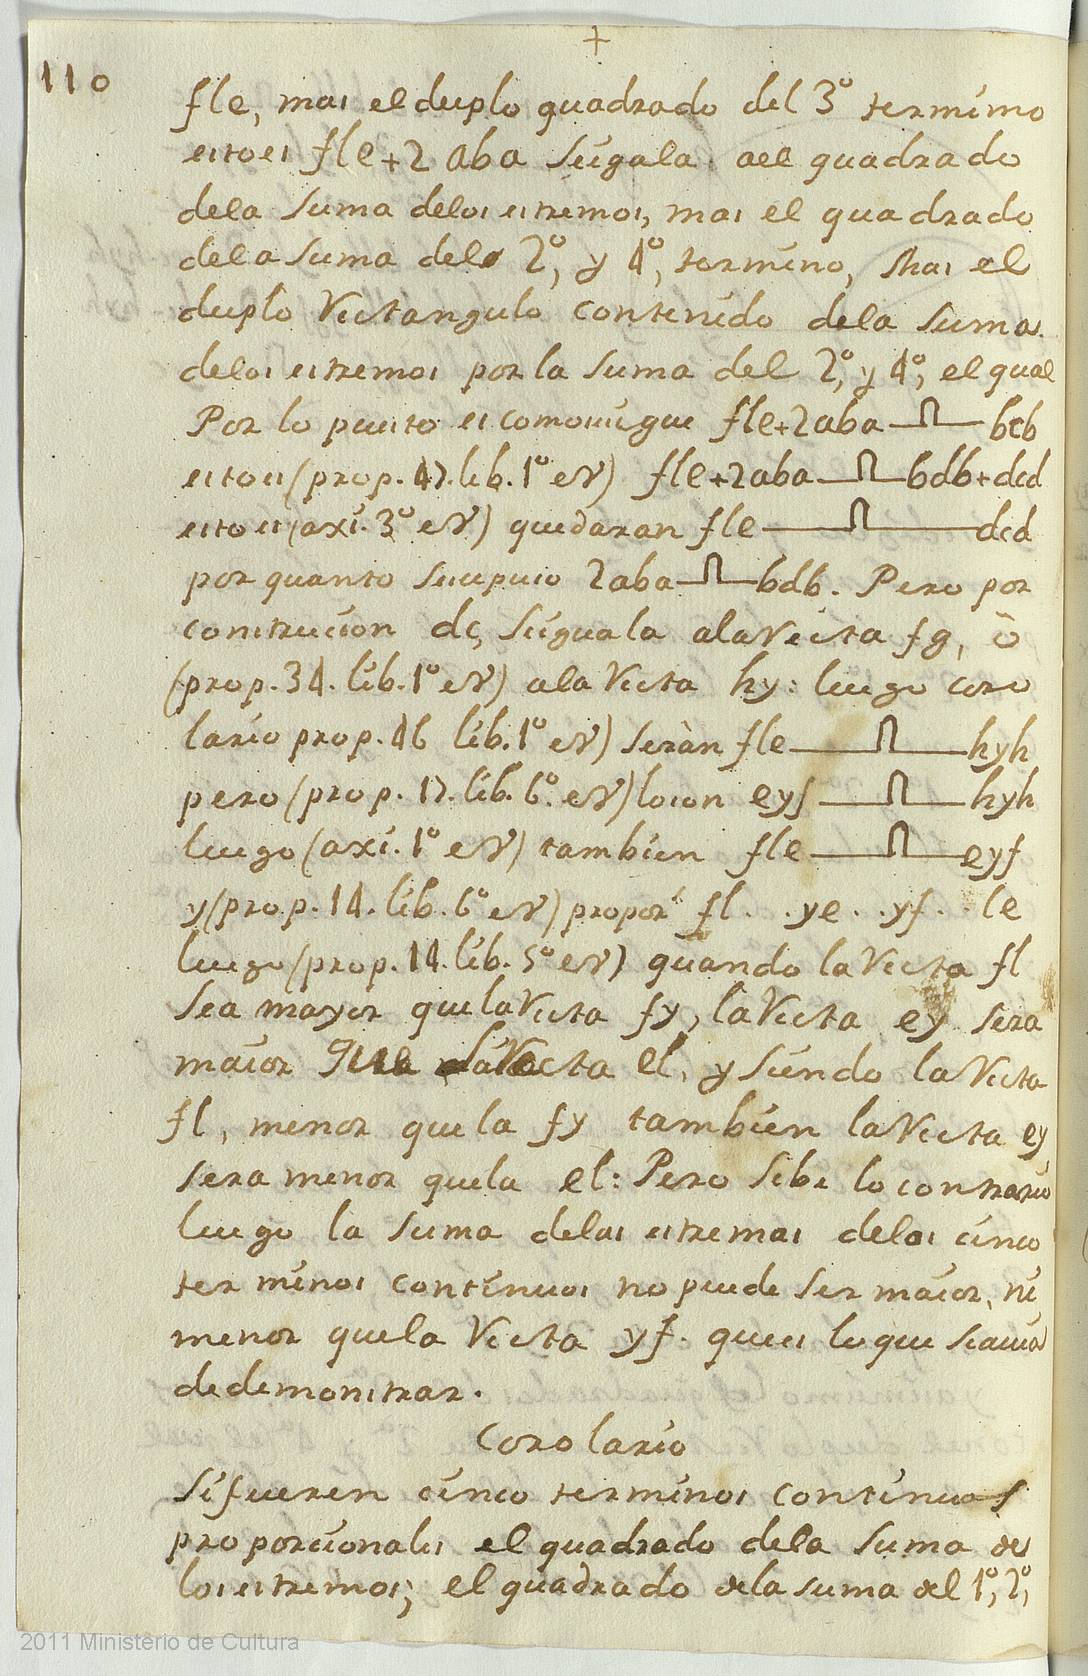 +
110
fle, mas el duplo quadrado del 3º termino
esto es fle+2 aba Siguala ael quadrado
dela Suma delos estremos, mas el quadrado
dela Suma delo 2º, y 4º, termino, mas el
duplo Rectangulo contenido dela Suma
delos estremos por la Suma del 2º, y 4º, el qual
Por lo puesto es como sigue fle+2aba bcb
esto es (prop. 47. lib. 1º er) fle+2aba bdb+dcd
esto es (axi. 3º er) quedaran fle dcd
por quanto Se supuso 2aba bdb. Pero por
construcion dc, Siguala ala Recta fg, ò
(prop. 34. lib. 1º er) ala Recta hy: luego coro
lario prop. 46 lib. 1º er) Seràn fle hyh
pero (prop. 17. lib. 6º er) lo son eyf hyh
luego (axi. 1º er) tambien fle eyf
y (prop. 14. lib. 6º er) propor fl . . ye . . yf . . le
luego (prop. 14. lib. 5º er) quando la Recta fl
Sea mayor que la Recta fy, la Recta ey sera
maior que la Recta el, y Siendo la Recta
fl, menor que la fy tambien la Recta ey
sera menor quela el: Pero Sibe lo contrario
luego la Suma delos estremos delos cinco
terminos continuos no puede Ser maior, ni
menor quela Recta yf. que es lo que Seavia
dedemonstrar.
Corolario
Sifueren cinco terminos continuos
proporcionales el quadrado dela Suma de
los estremos; el quadrado dela suma del 1º, 2º,
2011 Ministerio de Cultura